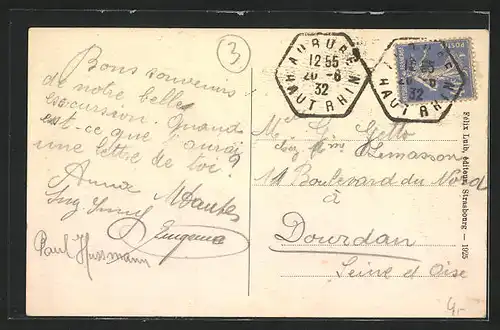 3
Bons souvenirs
de notre belle
excursion. Quand
est-ce que j'aurai
une lettre de toi?
Anna
Eugenie
Paul Hussmann
AUBURE
12 55
20 - 8
32
HAUT RHIN
POSTES
32
HAUT RHIN
Mr. G. Getto
chez Mme Lemasson
11 Boulevard du Nord
à
Dourdan
Seine et Oise
Felix Luib, éditeur, Strasbourg — 1925
4,-